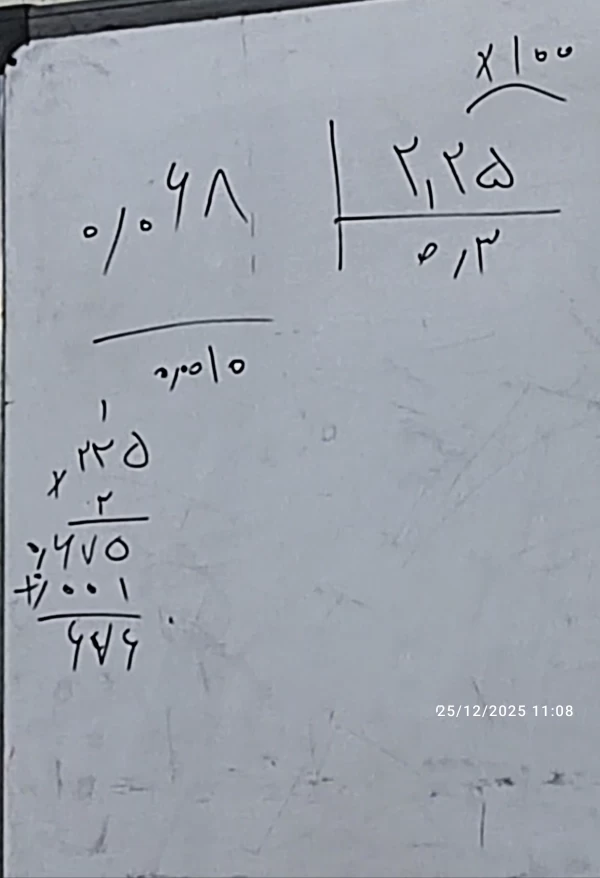 ×۱۰۰
۰/۰۶۸ ۲,۲۵
۰,۳
۰,۰۰۱۵
۱
۲۲۵
× ۳
۰,۶۷۵
+ ۰,۰۰۱
۶۷۶
25/12/2025 11:08